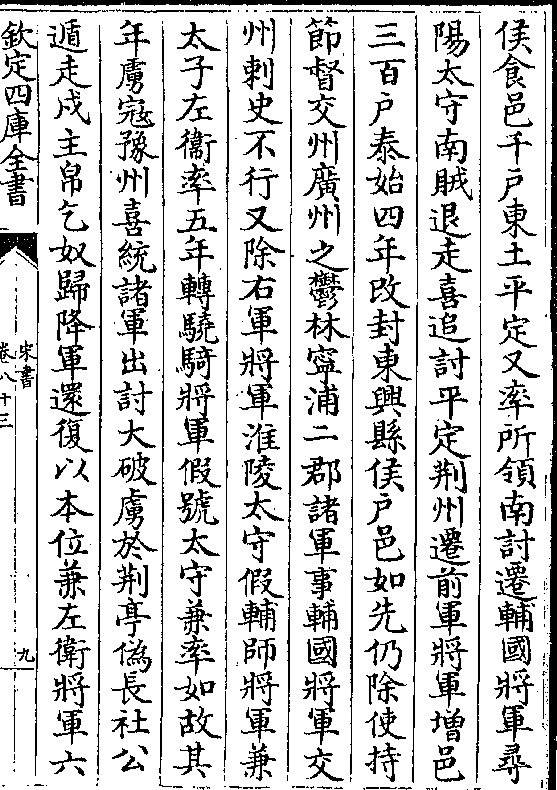 侯食邑千戸東土平定又率所領南討遷輔國將軍尋
陽太守南賊退走喜追討平定荆州遷前軍將軍増邑
三百户泰始四年改封東興縣侯戸邑如先仍除使持
節督交州廣州之鬱林寧浦二郡諸軍事輔國將軍交
州刺史不行又除右軍將軍淮陵太守假輔師將軍兼
太子左衞率五年轉驍騎將軍假號太守兼率如故其
年虜宼豫州喜統諸軍出討大破虜於荆亭偽長社公
遁走戍主帛乞奴歸降軍還復以本位兼左衛將軍六
欽定四庫全書
宋書
卷八十三
九